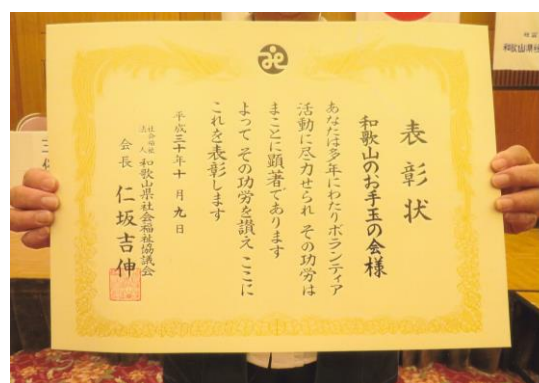 表彰状
和歌山のお手玉の会様
あなたは多年にわたりボランティア
活動に尽力せられ その功労は
まことに顕著であります
よって その功労を讃え ここに
これを表彰します
平成三十年十月九日
社会福祉法人 和歌山県社会福祉協議会
会長 仁坂吉伸
和歌山県社